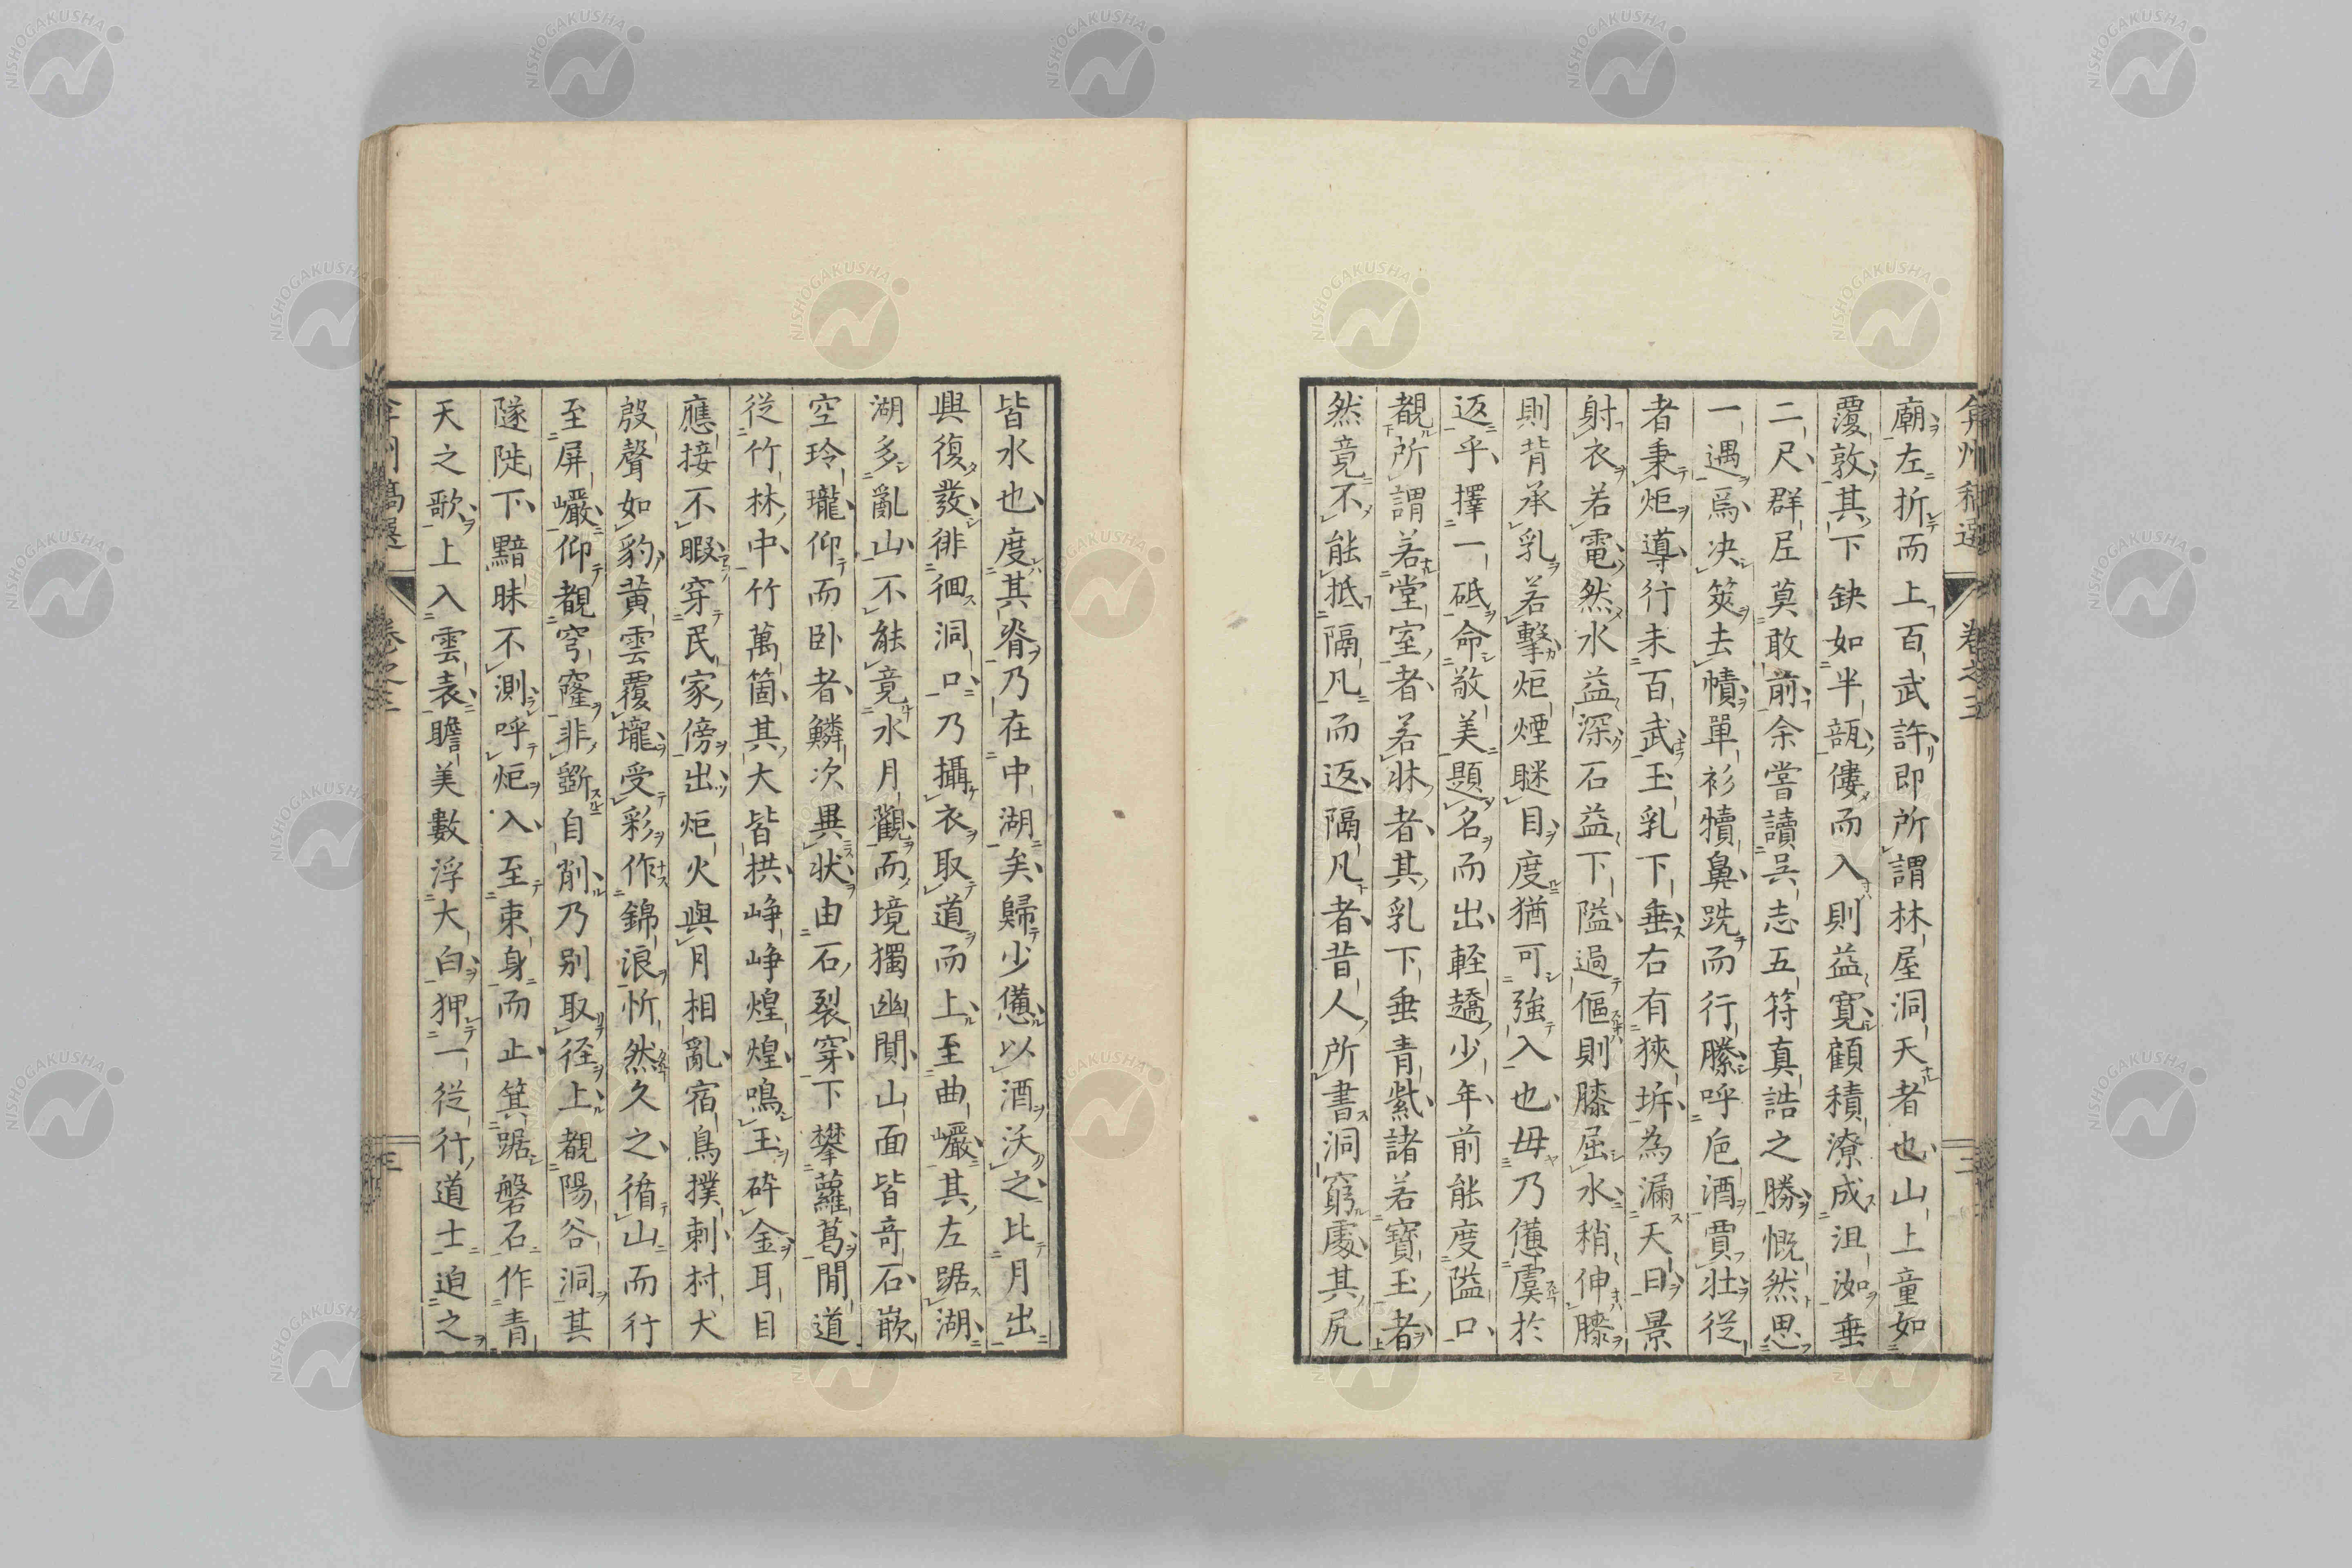 廟左折而上百武許即所謂林屋洞天者也山上童如
覆敦其下缺如半瓿僂而入則益寛顧積潦成沮洳垂
二尺群尫莫敢前余嘗讀呉志五符真誥之勝慨然思
一遇焉决筴去幘單衫犢鼻跣而行縢呼巵酒賈壮從
者秉炬導行未百武玉乳下垂右有狹坼為漏天日景
射衣若電然水益深石益下隘過傴則膝屈水稍伸膝
則背承乳若擊炬煙瞇目度猶可強入也毋乃憊虞於
返乎擇一砥命敬美題名而出輕趫少年前能度隘口
覩所謂若堂室者若牀者其乳下垂青紫諸若寳玉者
然竟不能抵隔凡而返隔凡者昔人所書洞窮處其尻
皆水也度其脊乃在中湖矣歸少憊以酒沃之比月出
興復發徘徊洞口乃攝衣取道而上至曲巖其左踞湖
湖多亂山不能竟水月觀而境獨幽閴山面皆竒石嵌
空玲瓏仰而卧者鱗次異状由石裂穿下攀蘿葛間道
從竹林中竹萬箇其大皆拱崢崢煌煌鳴玉砕金耳目
應接不暇穿民家傍出炬火與月相亂宿鳥撲剌村犬
殷聲如豹黄雲覆壠受彩作錦浪忻然久之循山而行
至屏巖仰覩穹窿非斵自削乃别取径上覩陽谷洞其
隧陡下黯昧不測呼炬入至束身而止箕踞磐石作青
天之歌上入雲表瞻美數浮大白狎一從行道士迫之
弇州稿選
卷之三
三